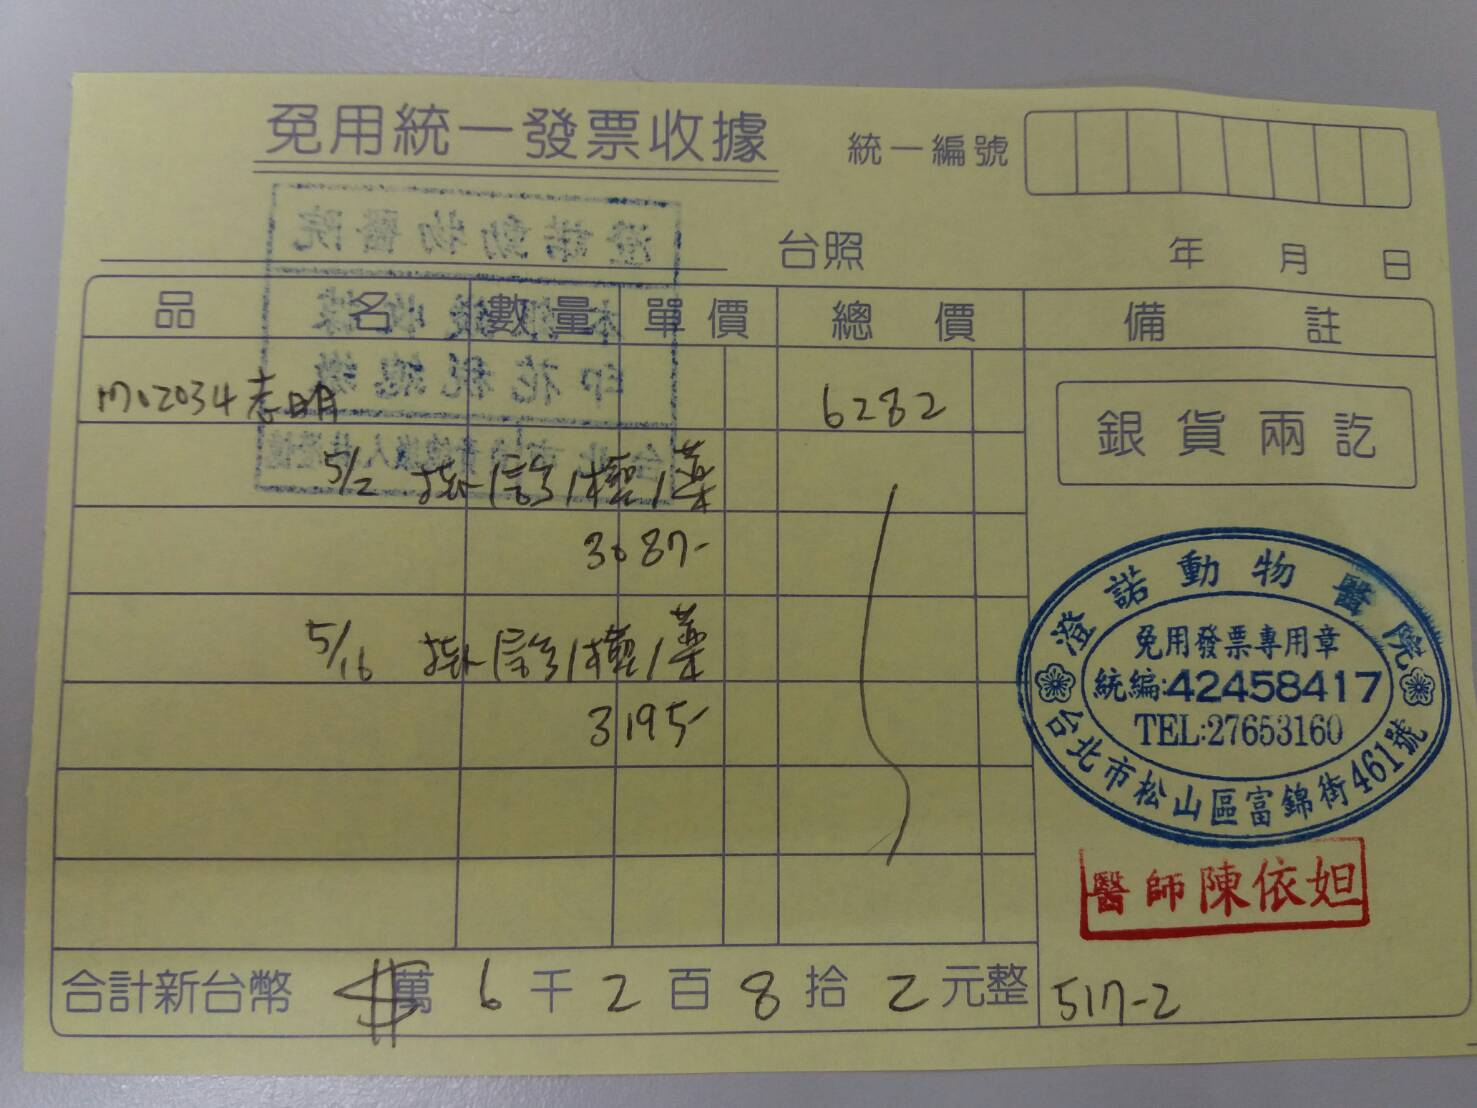 免用統一發票收據
統一編號
台照 年 月 日
品 名 數量 單價 總價 備註
M02034志明 6282
銀貨兩訖
5/2 掛/診/檢/藥
3087-
5/16 掛/診/檢/藥
3195-
澄諾動物醫院
免用發票專用章
統編:42458417
TEL:27653160
台北市松山區富錦街461號
醫師陳依妲
合計新台幣 萬 6 千 2 百 8 拾 2 元整
517-2
澄諾動物醫院
本張收據
印花稅總繳